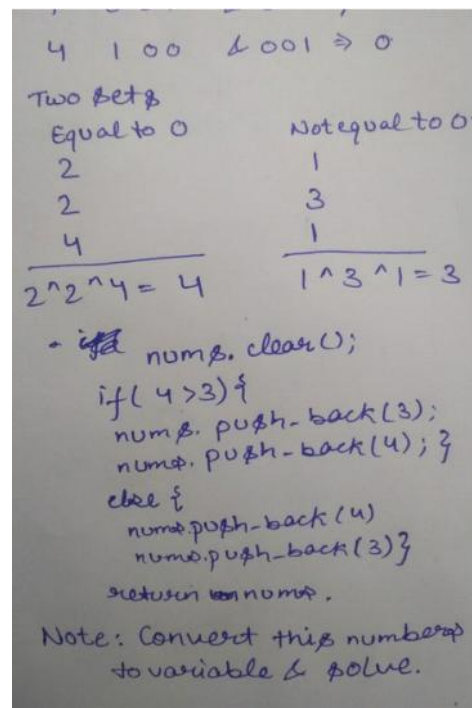 4 1 00 & 001 ⇒ 0
Two sets
Equal to 0 Not equal to 0
2 1
2 3
4 1
2^2^4 = 4 1^3^1 = 3
nums.clear();
if(4>3){
nums.push-back(3);
nums.push-back(4);}
else {
nums.push-back(4)
nums.push-back(3)}
return nums.
Note: Convert this numbers
to variable & solve.